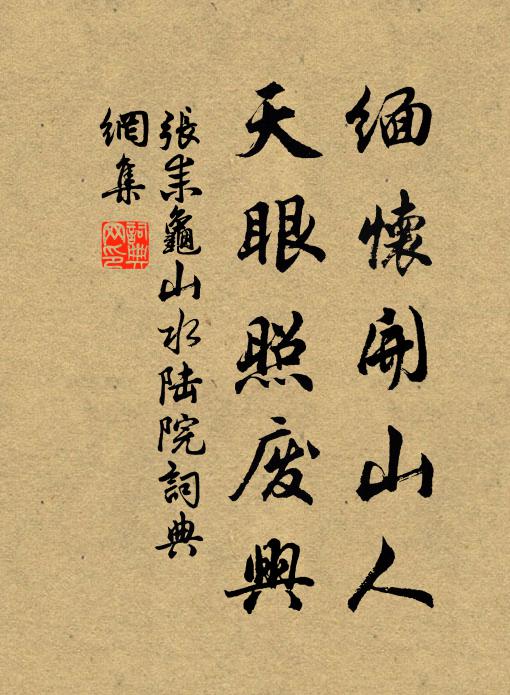 缅懷開山人
天眼照废興
張耒龜山水陆院詞典
網集
詞典
网印